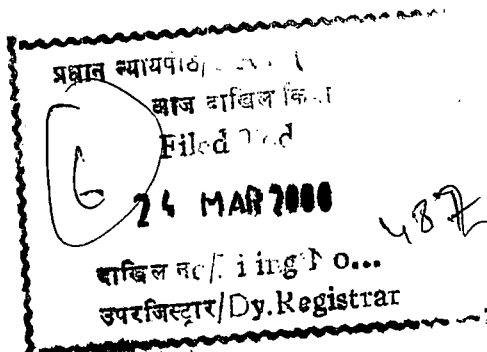 प्रधान न्यायपीठ/
आज दाखिल किया
Filed
24 MAR 2000
दाखिल नं/Filing No...
487
उपरजिस्ट्रार/Dy.Registrar